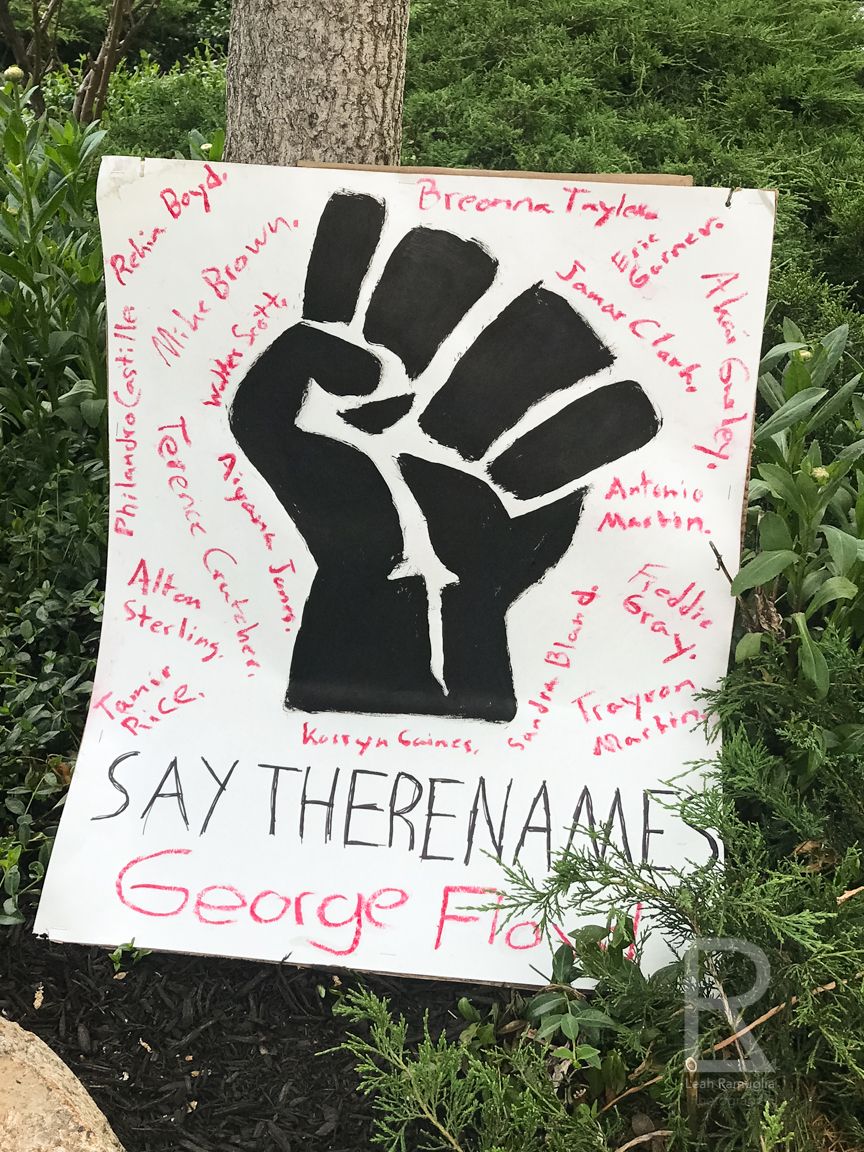 Rekia Boyd.
Breonna Taylor
Mike Brown.
Eric
Garner.
Walter Scott.
Jamar Clark.
Akai Gurley.
Philandro Castille
Terence Crutcher.
Aiyanna Jones.
Antonio
Martin.
Alton
Sterling.
Freddie
Gray.
Sandra Bland.
Tamir
Rice.
Trayvon
Martin.
Korryn Gaines.
SAY THERE NAMES
George Floyd
Leah Ramuglia
Photography